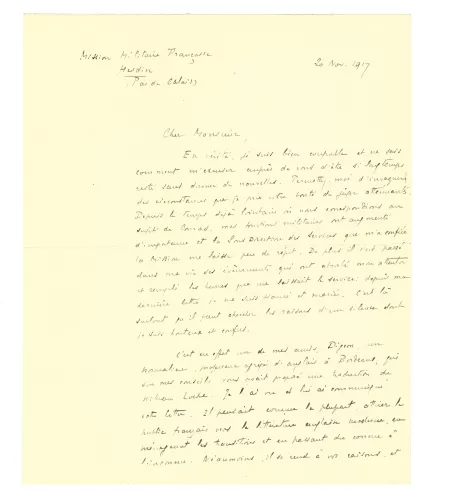 Mission Militaire Française
Hesdin
Pas de Calais
20 Nov. 1917
Cher Monsieur,
En vérité, je suis bien coupable et ne sais
comment m'excuser auprès de vous d'être si longtemps
resté sans donner de nouvelles. Permettez moi d'invoquer
des circonstances que je prie votre bonté de juger atténuantes.
Depuis le temps déjà lointain où nous correspondions au
sujet de Conrad, mes fonctions militaires ont augmenté
d'importance et la Sous Direction des Services que m'a confiée
la Mission me laisse peu de répit. De plus il s'est passé
dans ma vie des événements qui ont absorbé mon attention
et rempli les heures que me laissait le service: depuis ma
dernière lettre je me suis fiancé et marié. C'est là
surtout qu'il faut chercher les raisons d'un silence dont
je suis honteux et confus.
C'est en effet un de mes amis, Digeon, un
professeur agrégé d'anglais à Bordeaux, qui
sur mes conseils vous avait proposé une traduction de
. Je l'ai vu et lui ai communiqué
votre lettre. Il pensait comme la plupart, attirer le
public français vers la littérature anglaise moderne, en
ménageant les transitions et en passant du connu à
l'inconnu. Néanmoins, il se rend à vos raisons, et